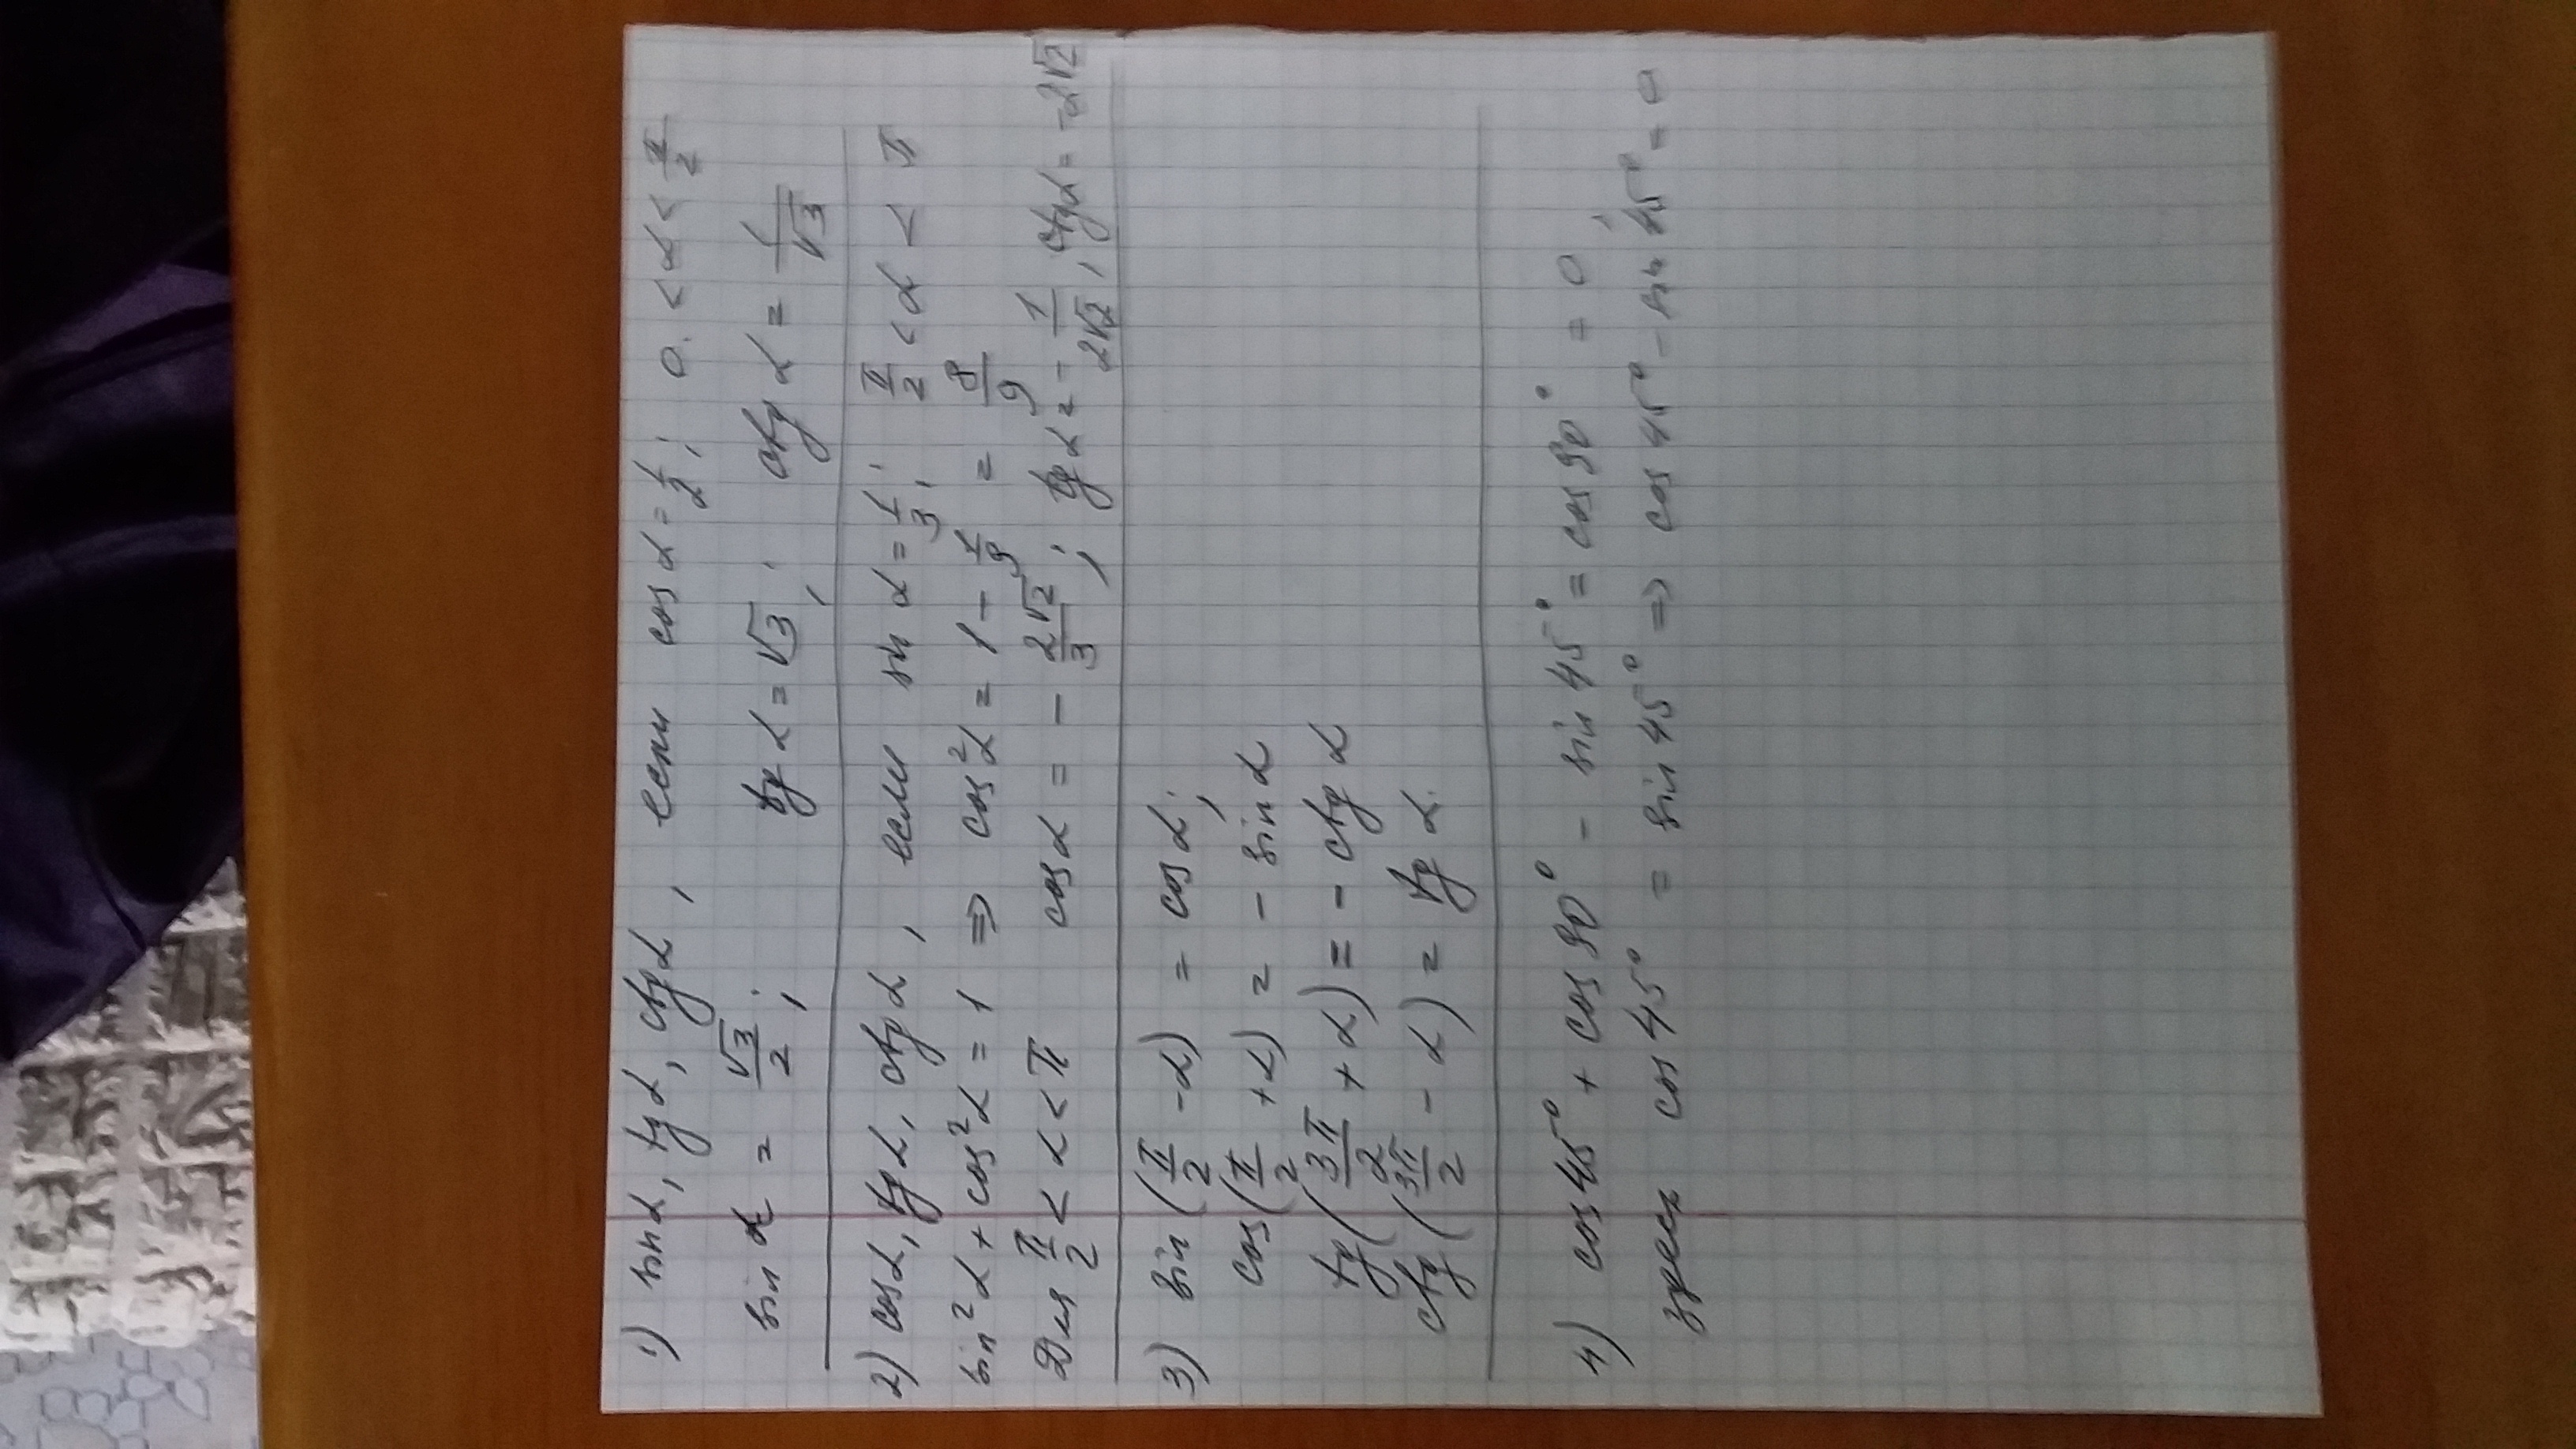 1) sin α, tg α, ctg α, если cos α = 1/2; 0 < α < π/2
sin α = √3/2; tg α = √3; ctg α = 1/√3
2) cos α, tg α, ctg α, если sin α = 1/3; π/2 < α < π
sin² α + cos² α = 1 ⇒ cos² α = 1 - 1/9 = 8/9
Для π/2 < α < π cos α = - 2√2/3; tg α = - 1/2√2, ctg α = -2√2
3) sin (π/2 - α) = cos α;
cos (π/2 + α) = - sin α
tg (3π/2 + α) = - ctg α
ctg (3π/2 - α) = tg α.
4) cos 45° + cos 90° - sin 45° = cos 90° = 0
здесь cos 45° = sin 45° ⇒ cos 45° - sin 45° = 0